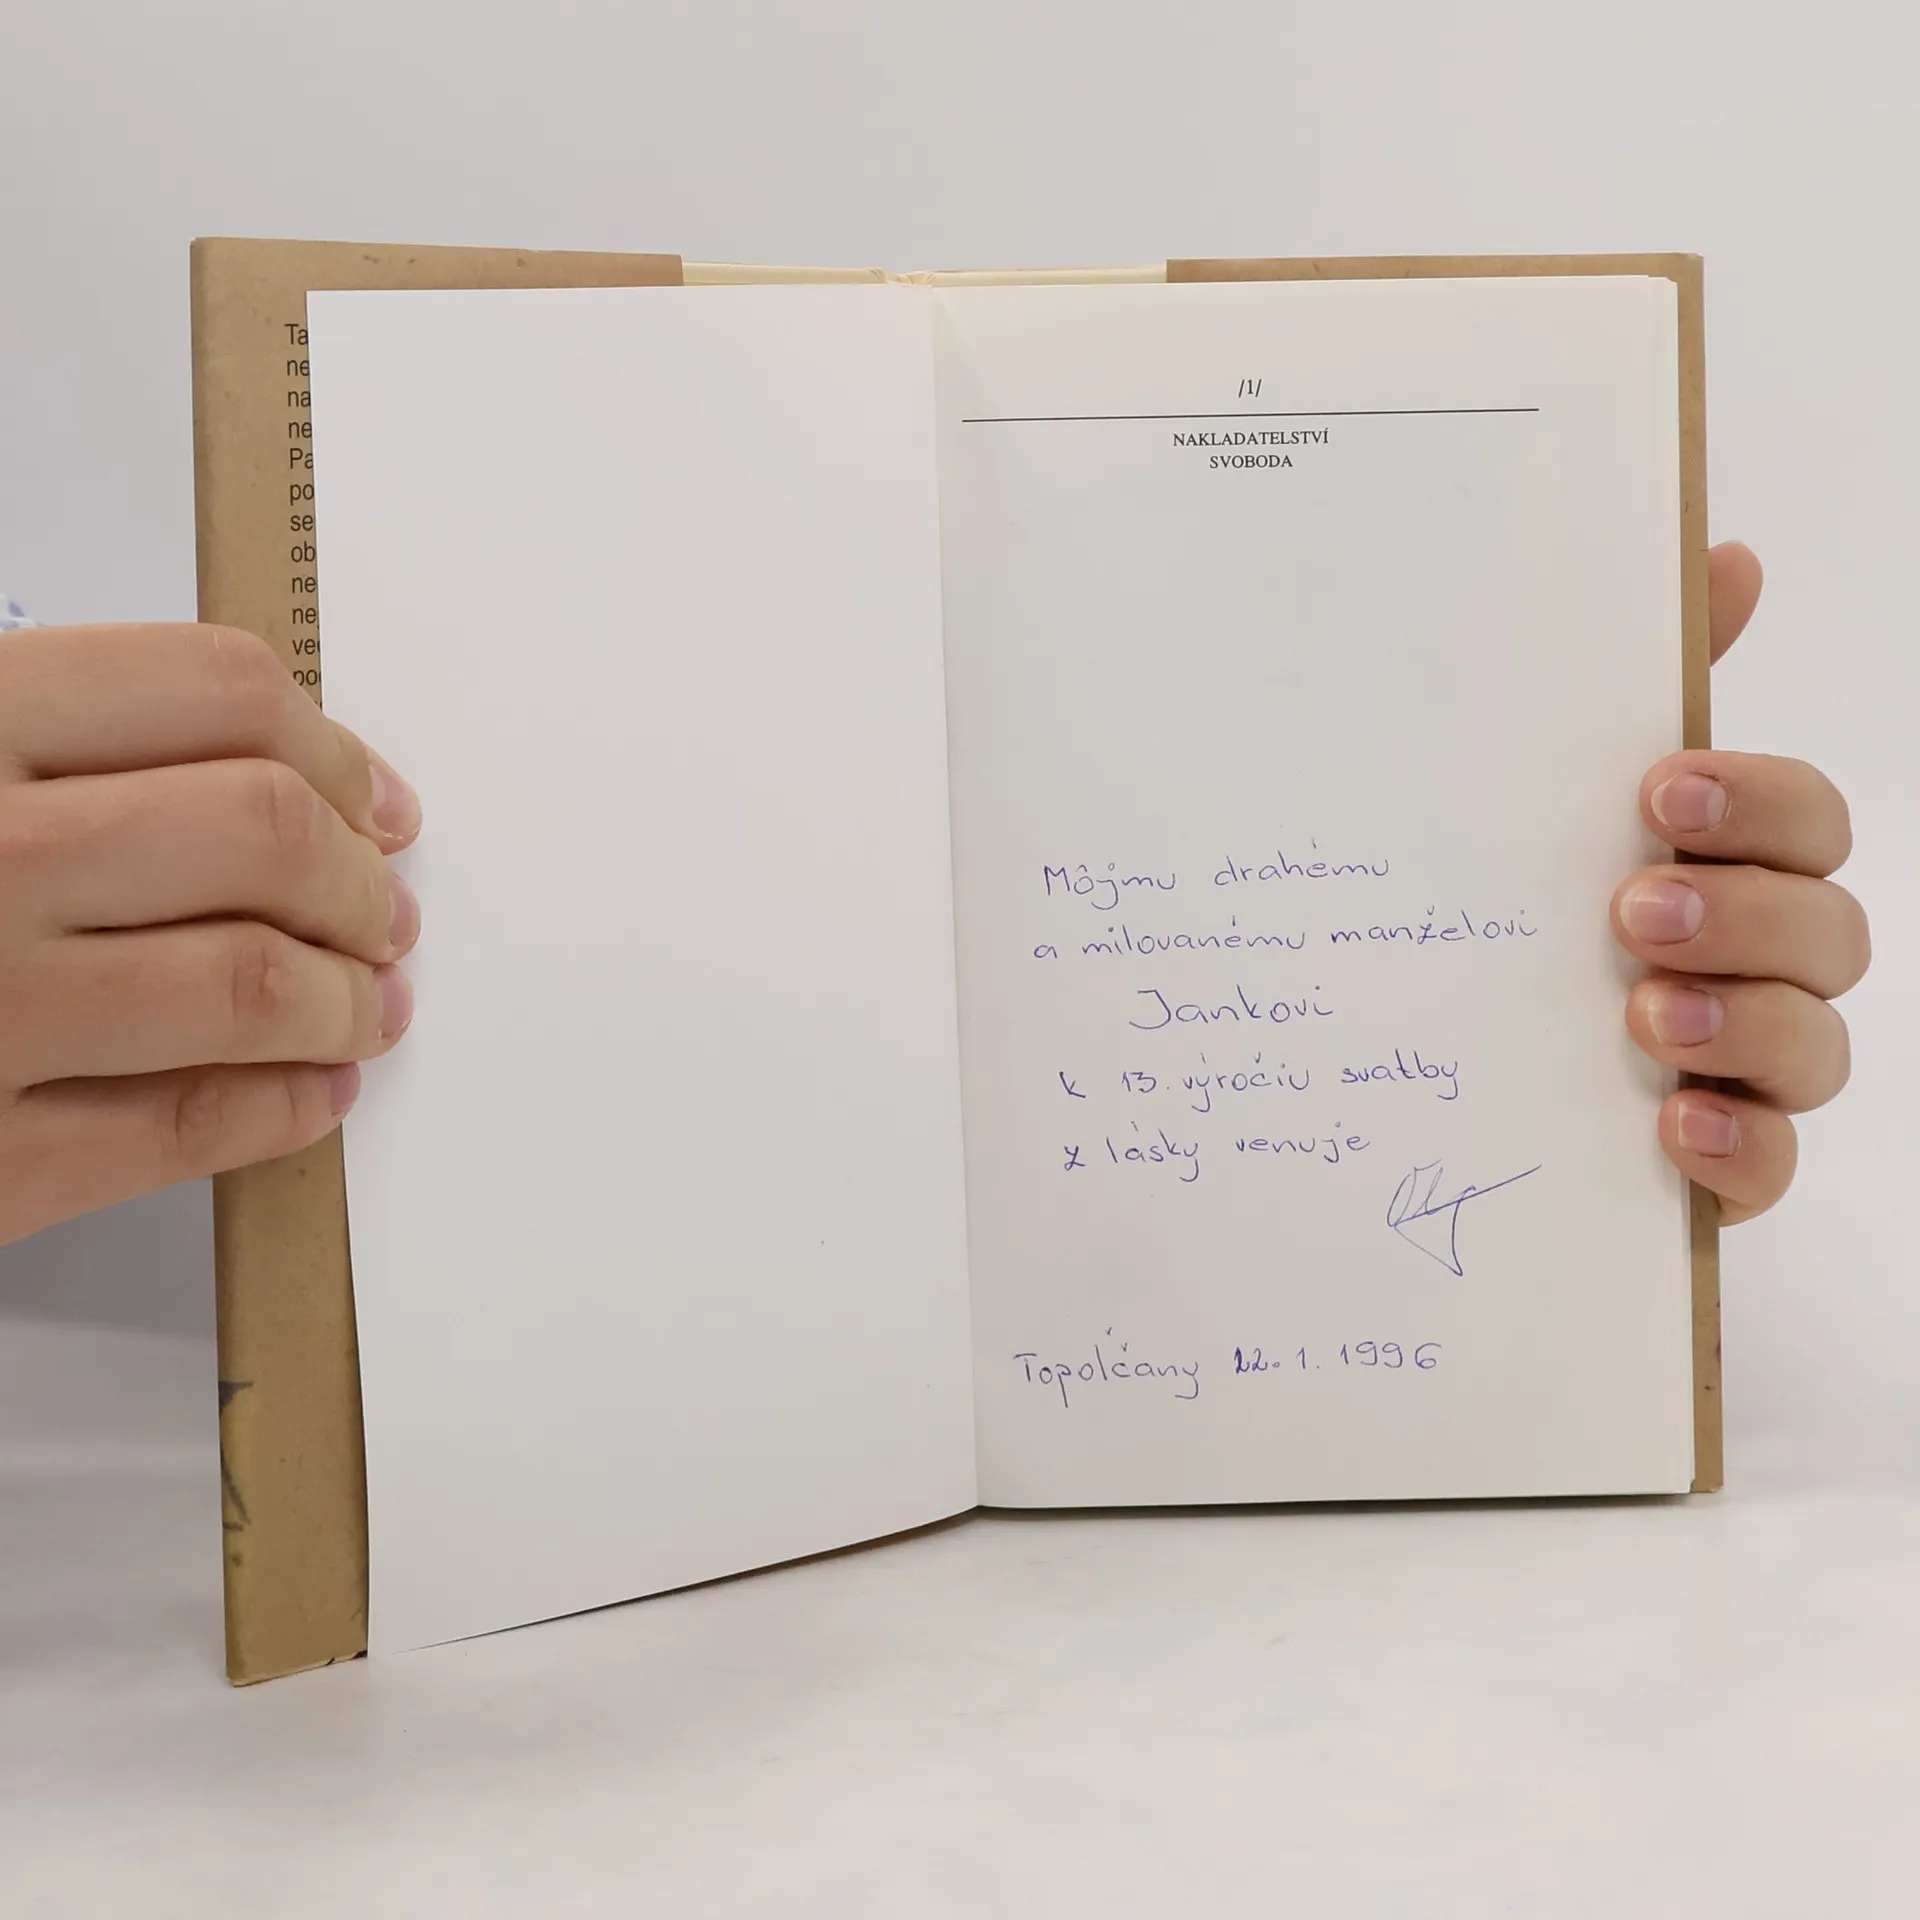 Ta
ne
na
ne
Pa
po
se
ob
ne
nej
ved
pod
/1/
NAKLADATELSTVÍ
SVOBODA
Môjmu drahému
a milovanému manželovi
Jankovi
k 13. výročiu svatby
z lásky venuje
Topoľčany 22. 1. 1996